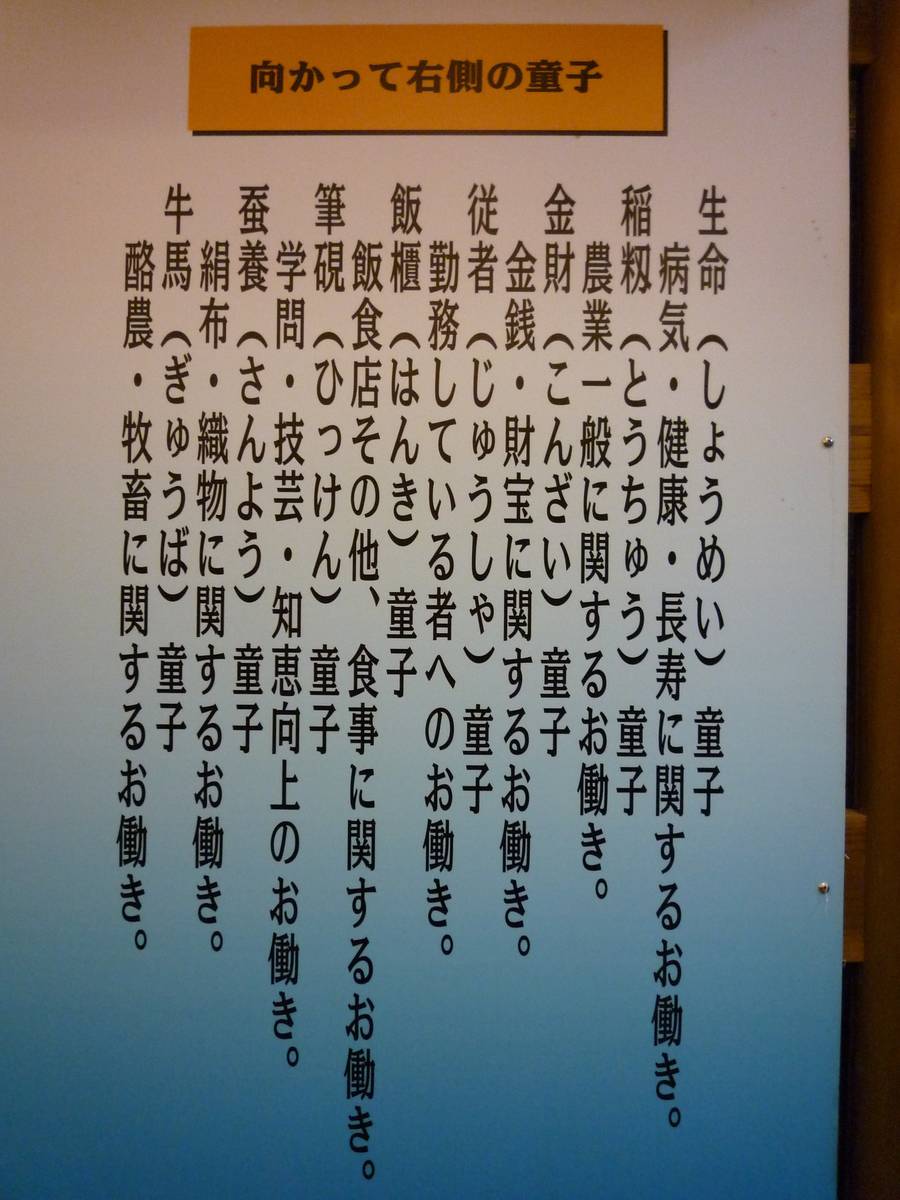 向かって右側の童子
生命（しょうめい）童子
病気・健康・長寿に関するお働き。
稲籾（とうちゅう）童子
農業一般に関するお働き。
金財（こんざい）童子
金銭・財宝に関するお働き。
従者（じゅうしゃ）童子
勤務している者へのお働き。
飯櫃（はんき）童子
飯食店その他、食事に関するお働き。
筆硯（ひっけん）童子
学問・技芸・知恵向上のお働き。
蚕養（さんよう）童子
絹布・織物に関するお働き。
牛馬（ぎゅうば）童子
酪農・牧畜に関するお働き。